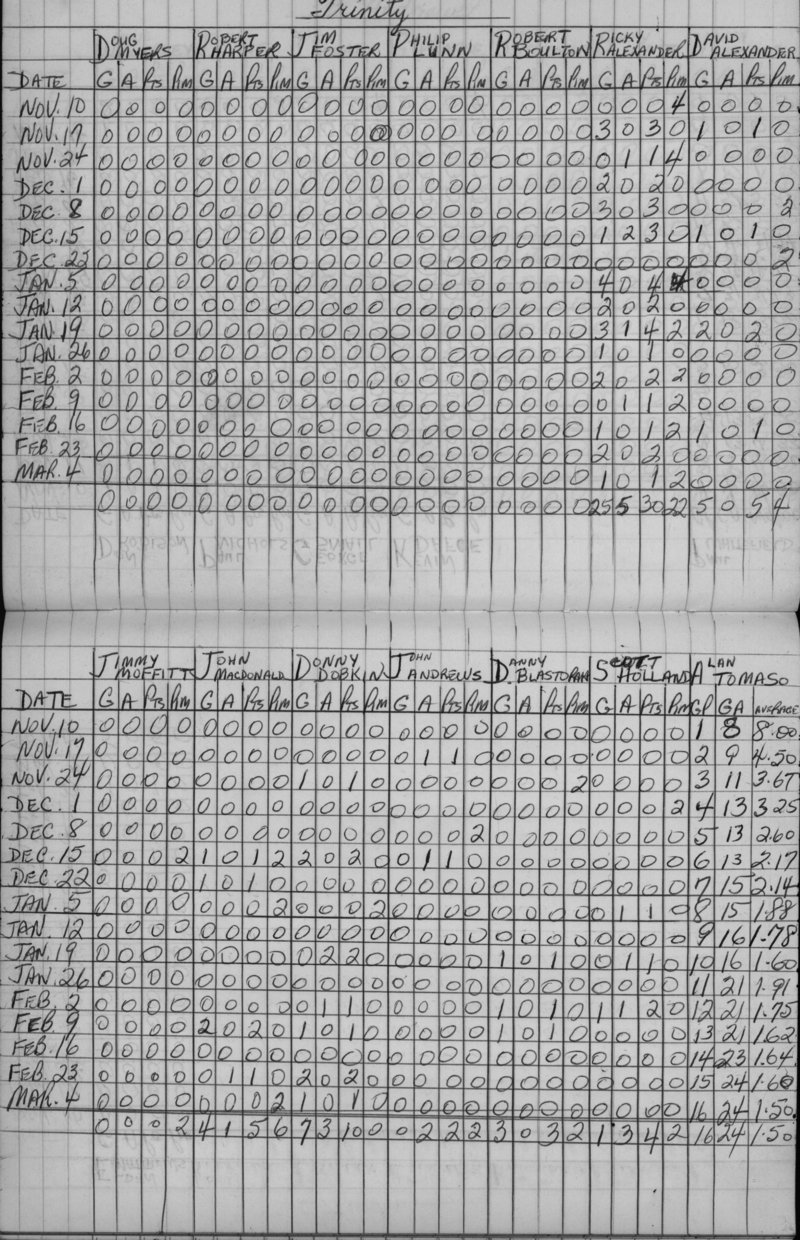 Trinity
DOUG MYERS ROBERT HARPER JIM FOSTER PHILIP LUNN ROBERT BOULTON RICKY ALEXANDER DAVID ALEXANDER
DATE G A Pts Pim G A Pts Pim G A Pts Pim G A Pts Pim G A Pts Pim G A Pts Pim G A Pts Pim
NOV. 10 0 0 0 0 0 0 0 0 0 0 0 0 0 0 0 0 0 0 0 0 0 0 0 4 0 0 0 0
NOV. 17 0 0 0 0 0 0 0 0 0 0 0 0 0 0 0 0 0 0 0 0 3 0 3 0 1 0 1 0
NOV. 24 0 0 0 0 0 0 0 0 0 0 0 0 0 0 0 0 0 0 0 0 0 1 1 4 0 0 0 0
DEC. 1 0 0 0 0 0 0 0 0 0 0 0 0 0 0 0 0 0 0 0 0 2 0 2 0 0 0 0 0
DEC 8 0 0 0 0 0 0 0 0 0 0 0 0 0 0 0 0 0 0 0 0 3 0 3 0 0 0 0 2
DEC. 15 0 0 0 0 0 0 0 0 0 0 0 0 0 0 0 0 0 0 0 0 1 2 3 0 1 0 1 0
DEC. 22 0 0 0 0 0 0 0 0 0 0 0 0 0 0 0 0 0 0 0 0 0 0 0 0 0 0 0 2
JAN. 5 0 0 0 0 0 0 0 0 0 0 0 0 0 0 0 0 0 0 0 0 4 0 4 4 0 0 0 0
JAN. 12 0 0 0 0 0 0 0 0 0 0 0 0 0 0 0 0 0 0 0 0 2 0 2 0 0 0 0 0
JAN 19 0 0 0 0 0 0 0 0 0 0 0 0 0 0 0 0 0 0 0 0 3 1 4 2 2 0 2 0
JAN. 26 0 0 0 0 0 0 0 0 0 0 0 0 0 0 0 0 0 0 0 0 1 0 1 0 0 0 0 0
FEB. 2 0 0 0 0 0 0 0 0 0 0 0 0 0 0 0 0 0 0 0 0 2 0 2 2 0 0 0 0
FEB. 9 0 0 0 0 0 0 0 0 0 0 0 0 0 0 0 0 0 0 0 0 0 1 1 2 0 0 0 0
FEB. 16 0 0 0 0 0 0 0 0 0 0 0 0 0 0 0 0 0 0 0 0 1 0 1 2 1 0 1 0
FEB. 23 0 0 0 0 0 0 0 0 0 0 0 0 0 0 0 0 0 0 0 0 2 0 2 0 0 0 0 0
MAR. 4 0 0 0 0 0 0 0 0 0 0 0 0 0 0 0 0 0 0 0 0 1 0 1 2 0 0 0 0
0 0 0 0 0 0 0 0 0 0 0 0 0 0 0 0 0 0 0 0 25 5 30 22 5 0 5 4
JIMMY MOFFITT JOHN MACDONALD DONNY DOBKIN JOHN ANDREWS DANNY BLASTORAH SCOTT HOLLAND ALAN TOMASO
DATE G A Pts Pim G A Pts Pim G A Pts Pim G A Pts Pim G A Pts Pim G A Pts Pim GP GA AVERAGE
NOV. 10 0 0 0 0 0 0 0 0 0 0 0 0 0 0 0 0 0 0 0 0 0 0 0 0 1 8 8.00
NOV. 17 0 0 0 0 0 0 0 0 0 0 0 0 0 1 1 0 0 0 0 0 0 0 0 0 2 9 4.50
NOV. 24 0 0 0 0 0 0 0 0 1 0 1 0 0 0 0 0 0 0 0 2 0 0 0 0 3 11 3.67
DEC. 1 0 0 0 0 0 0 0 0 0 0 0 0 0 0 0 0 0 0 0 0 0 0 0 2 4 13 3.25
DEC. 8 0 0 0 0 0 0 0 0 0 0 0 0 0 0 0 2 0 0 0 0 0 0 0 0 5 13 2.60
DEC. 15 0 0 0 2 1 0 1 2 2 0 2 0 0 1 1 0 0 0 0 0 0 0 0 0 6 13 2.17
DEC. 22 0 0 0 0 1 0 1 0 0 0 0 0 0 0 0 0 0 0 0 0 0 0 0 0 7 15 2.14
JAN. 5 0 0 0 0 0 0 0 2 0 0 0 2 0 0 0 0 0 0 0 0 0 1 1 0 8 15 1.88
JAN. 12 0 0 0 0 0 0 0 0 0 0 0 0 0 0 0 0 0 0 0 0 0 0 0 0 9 16 1.78
JAN. 19 0 0 0 0 0 0 0 0 0 2 2 0 0 0 0 0 1 0 1 0 0 1 1 0 10 16 1.60
JAN. 26 0 0 0 0 0 0 0 0 0 0 0 0 0 0 0 0 0 0 0 0 0 0 0 0 11 21 1.91
FEB. 2 0 0 0 0 0 0 0 0 0 1 1 0 0 0 0 0 1 0 1 0 1 1 2 0 12 21 1.75
FEB. 9 0 0 0 0 2 0 2 0 1 0 1 0 0 0 0 0 1 0 1 0 0 0 0 0 13 21 1.62
FEB. 16 0 0 0 0 0 0 0 0 0 0 0 0 0 0 0 0 0 0 0 0 0 0 0 0 14 23 1.64
FEB. 23 0 0 0 0 0 1 1 0 2 0 2 0 0 0 0 0 0 0 0 0 0 0 0 0 15 24 1.60
MAR. 4 0 0 0 0 0 0 0 2 1 0 1 0 0 0 0 0 0 0 0 0 0 0 0 0 16 24 1.50
0 0 0 2 4 1 5 6 7 3 10 0 0 2 2 2 3 0 3 2 1 3 4 2 16 24 1.50